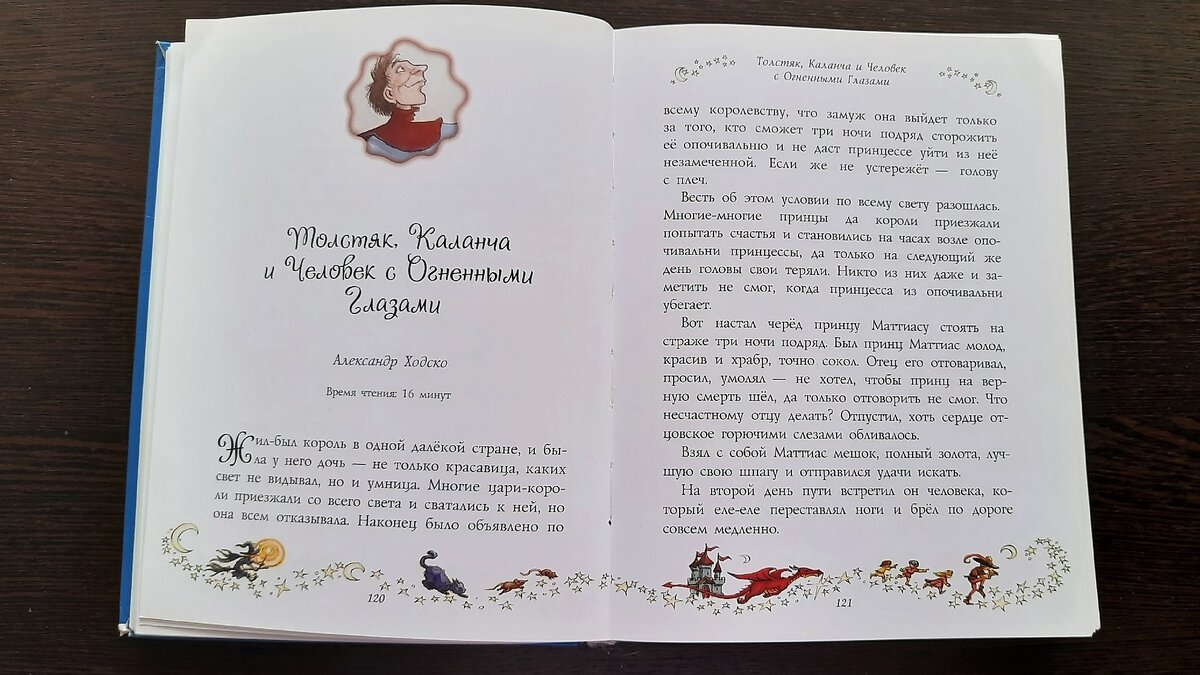 Толстяк, Каланча
и Человек с Огненными
Глазами
Александр Ходско
Время чтения: 16 минут
Жил-был король в одной далёкой стране, и бы-
ла у него дочь — не только красавица, каких
свет не видывал, но и умница. Многие цари-коро-
ли приезжали со всего света и сватались к ней, но
она всем отказывала. Наконец было объявлено по
120
Толстяк, Каланча и Человек
с Огненными Глазами
всему королевству, что замуж она выйдет только
за того, кто сможет три ночи подряд сторожить
её опочивальню и не даст принцессе уйти из неё
незамеченной. Если же не устережёт — голову
с плеч.
Весть об этом условии по всему свету разошлась.
Многие-многие принцы да короли приезжали
попытать счастья и становились на часах возле опо-
чивальни принцессы, да только на следующий же
день головы свои теряли. Никто из них даже и за-
метить не смог, когда принцесса из опочивальни
убегает.
Вот настал черёд принцу Маттиасу стоять на
страже три ночи подряд. Был принц Маттиас молод,
красив и храбр, точно сокол. Отец его отговаривал,
просил, умолял — не хотел, чтобы принц на вер-
ную смерть шёл, да только отговорить не смог. Что
несчастному отцу делать? Отпустил, хоть сердце от-
цовское горючими слезами обливалось.
Взял с собой Маттиас мешок, полный золота, луч-
шую свою шпагу и отправился удачи искать.
На второй день пути встретил он человека, ко-
торый еле-еле переставлял ноги и брёл по дороге
совсем медленно.
121